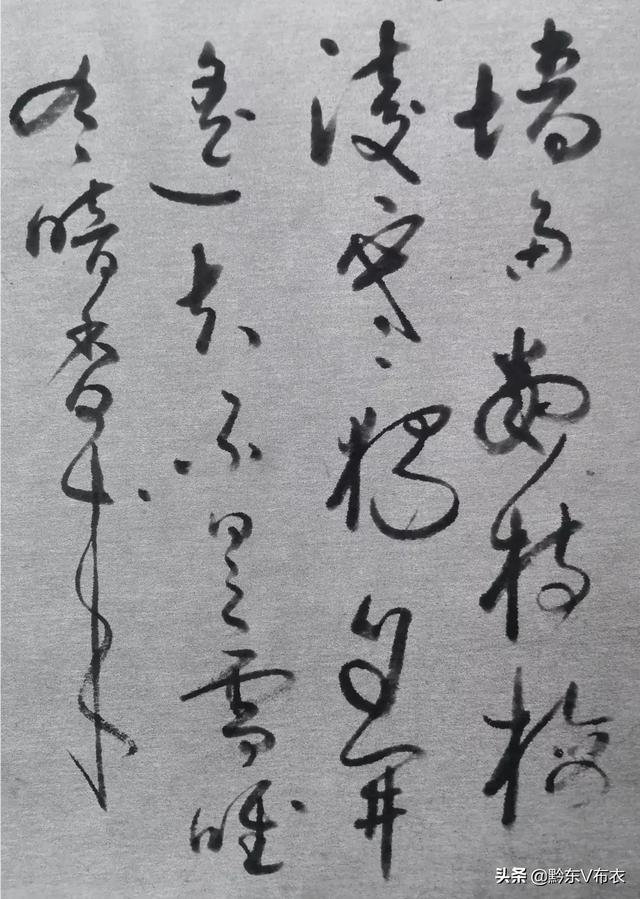 墙角数枝梅
凌寒独自开
遥知不是雪唯
有暗香来
头条 @黔东V布衣